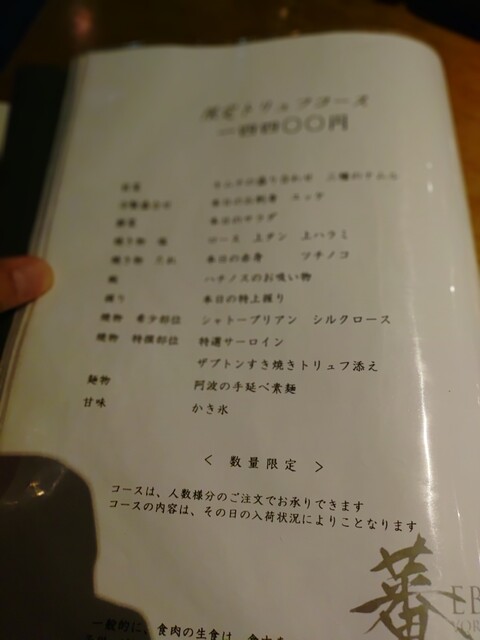 限定トリュフコース
一四四〇〇円
キムチの盛り合わせ 三種のナムル
本日のお刺身 ユッケ
本日のサラダ
焼き物 塩 ロース 上タン 上ハラミ
焼き物 たれ 本日の赤身 ツチノコ
椀 ハチノスのお吸い物
握り 本日の特上握り
焼物 希少部位 シャトーブリアン シルクロース
焼物 特撰部位 特選サーロイン
ザブトンすき焼きトリュフ添え
麺物 阿波の手延べ素麺
甘味 かき氷
< 数量限定 >
コースは、人数様分のご注文でお承りできます
コースの内容は、その日の入荷状況によりことなります
蕃 EB
一般的に、食肉の生食は、